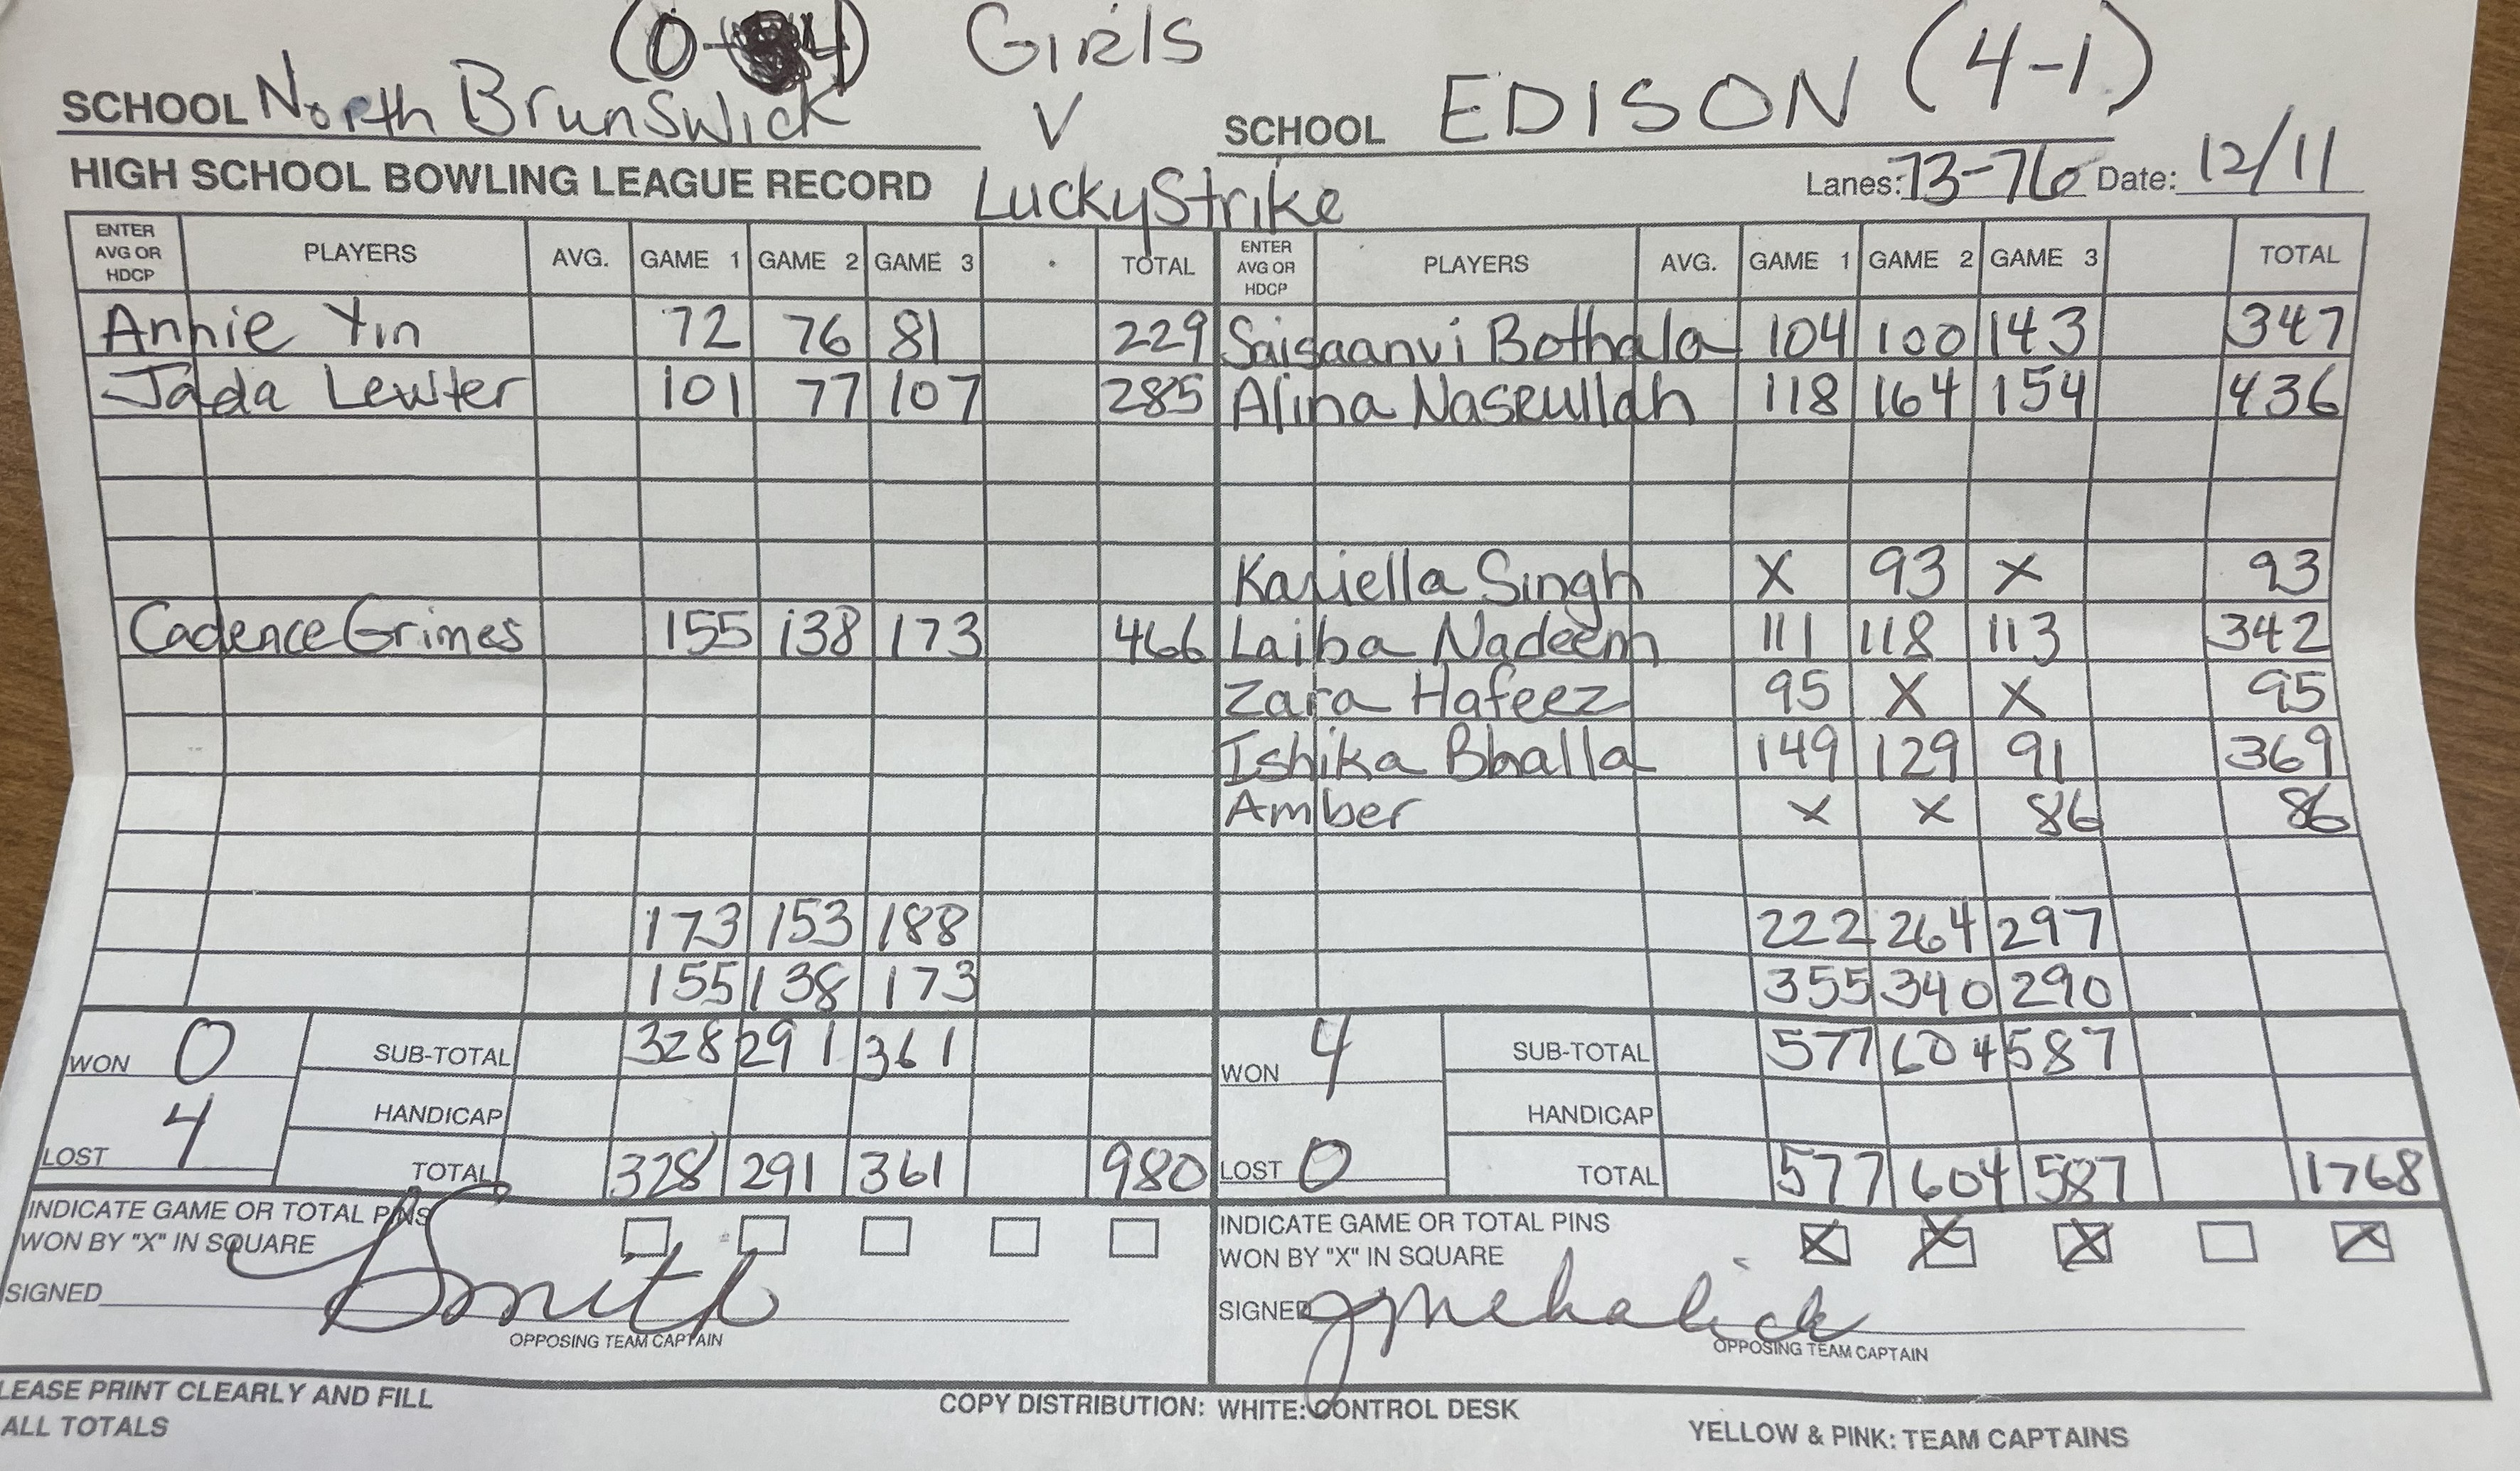 (0-4) Girls
SCHOOL North Brunswick V SCHOOL EDISON (4-1)
HIGH SCHOOL BOWLING LEAGUE RECORD Lucky Strike Lanes: 73-76 Date: 12/11
ENTER AVG OR HDCP PLAYERS AVG. GAME 1 GAME 2 GAME 3 TOTAL ENTER AVG OR HDCP PLAYERS AVG. GAME 1 GAME 2 GAME 3 TOTAL
Annie Yin 72 76 81 229 Saisaanvi Bothala 104 100 143 347
Jada Lewter 101 77 107 285 Alina Nasrullah 118 164 154 436
Kaviella Singh X 93 X 93
Cadence Grimes 155 138 173 466 Laiba Nadeem 111 118 113 342
Zara Hafeez 95 X X 95
Ishika Bhalla 149 129 91 369
Amber X X 86 86
173 153 188 222 264 297
155 138 173 355 340 290
WON 0 SUB-TOTAL 328 291 361 WON 4 SUB-TOTAL 577 604 587
HANDICAP HANDICAP
LOST 4 TOTAL 328 291 361 980 LOST 0 TOTAL 577 604 587 1768
INDICATE GAME OR TOTAL PINS INDICATE GAME OR TOTAL PINS
WON BY "X" IN SQUARE WON BY "X" IN SQUARE X X X X
SIGNED Smith SIGNED
OPPOSING TEAM CAPTAIN OPPOSING TEAM CAPTAIN
LEASE PRINT CLEARLY AND FILL COPY DISTRIBUTION: WHITE: CONTROL DESK
ALL TOTALS YELLOW & PINK: TEAM CAPTAINS